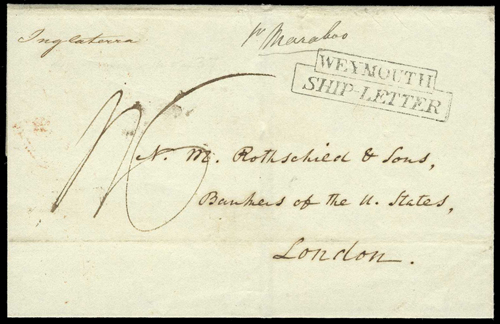 Inglaterra
pr Maraboo
WEYMOUTH
SHIP-LETTER
N. M. Rothschild & Sons,
Bankers of the U. States,
London.